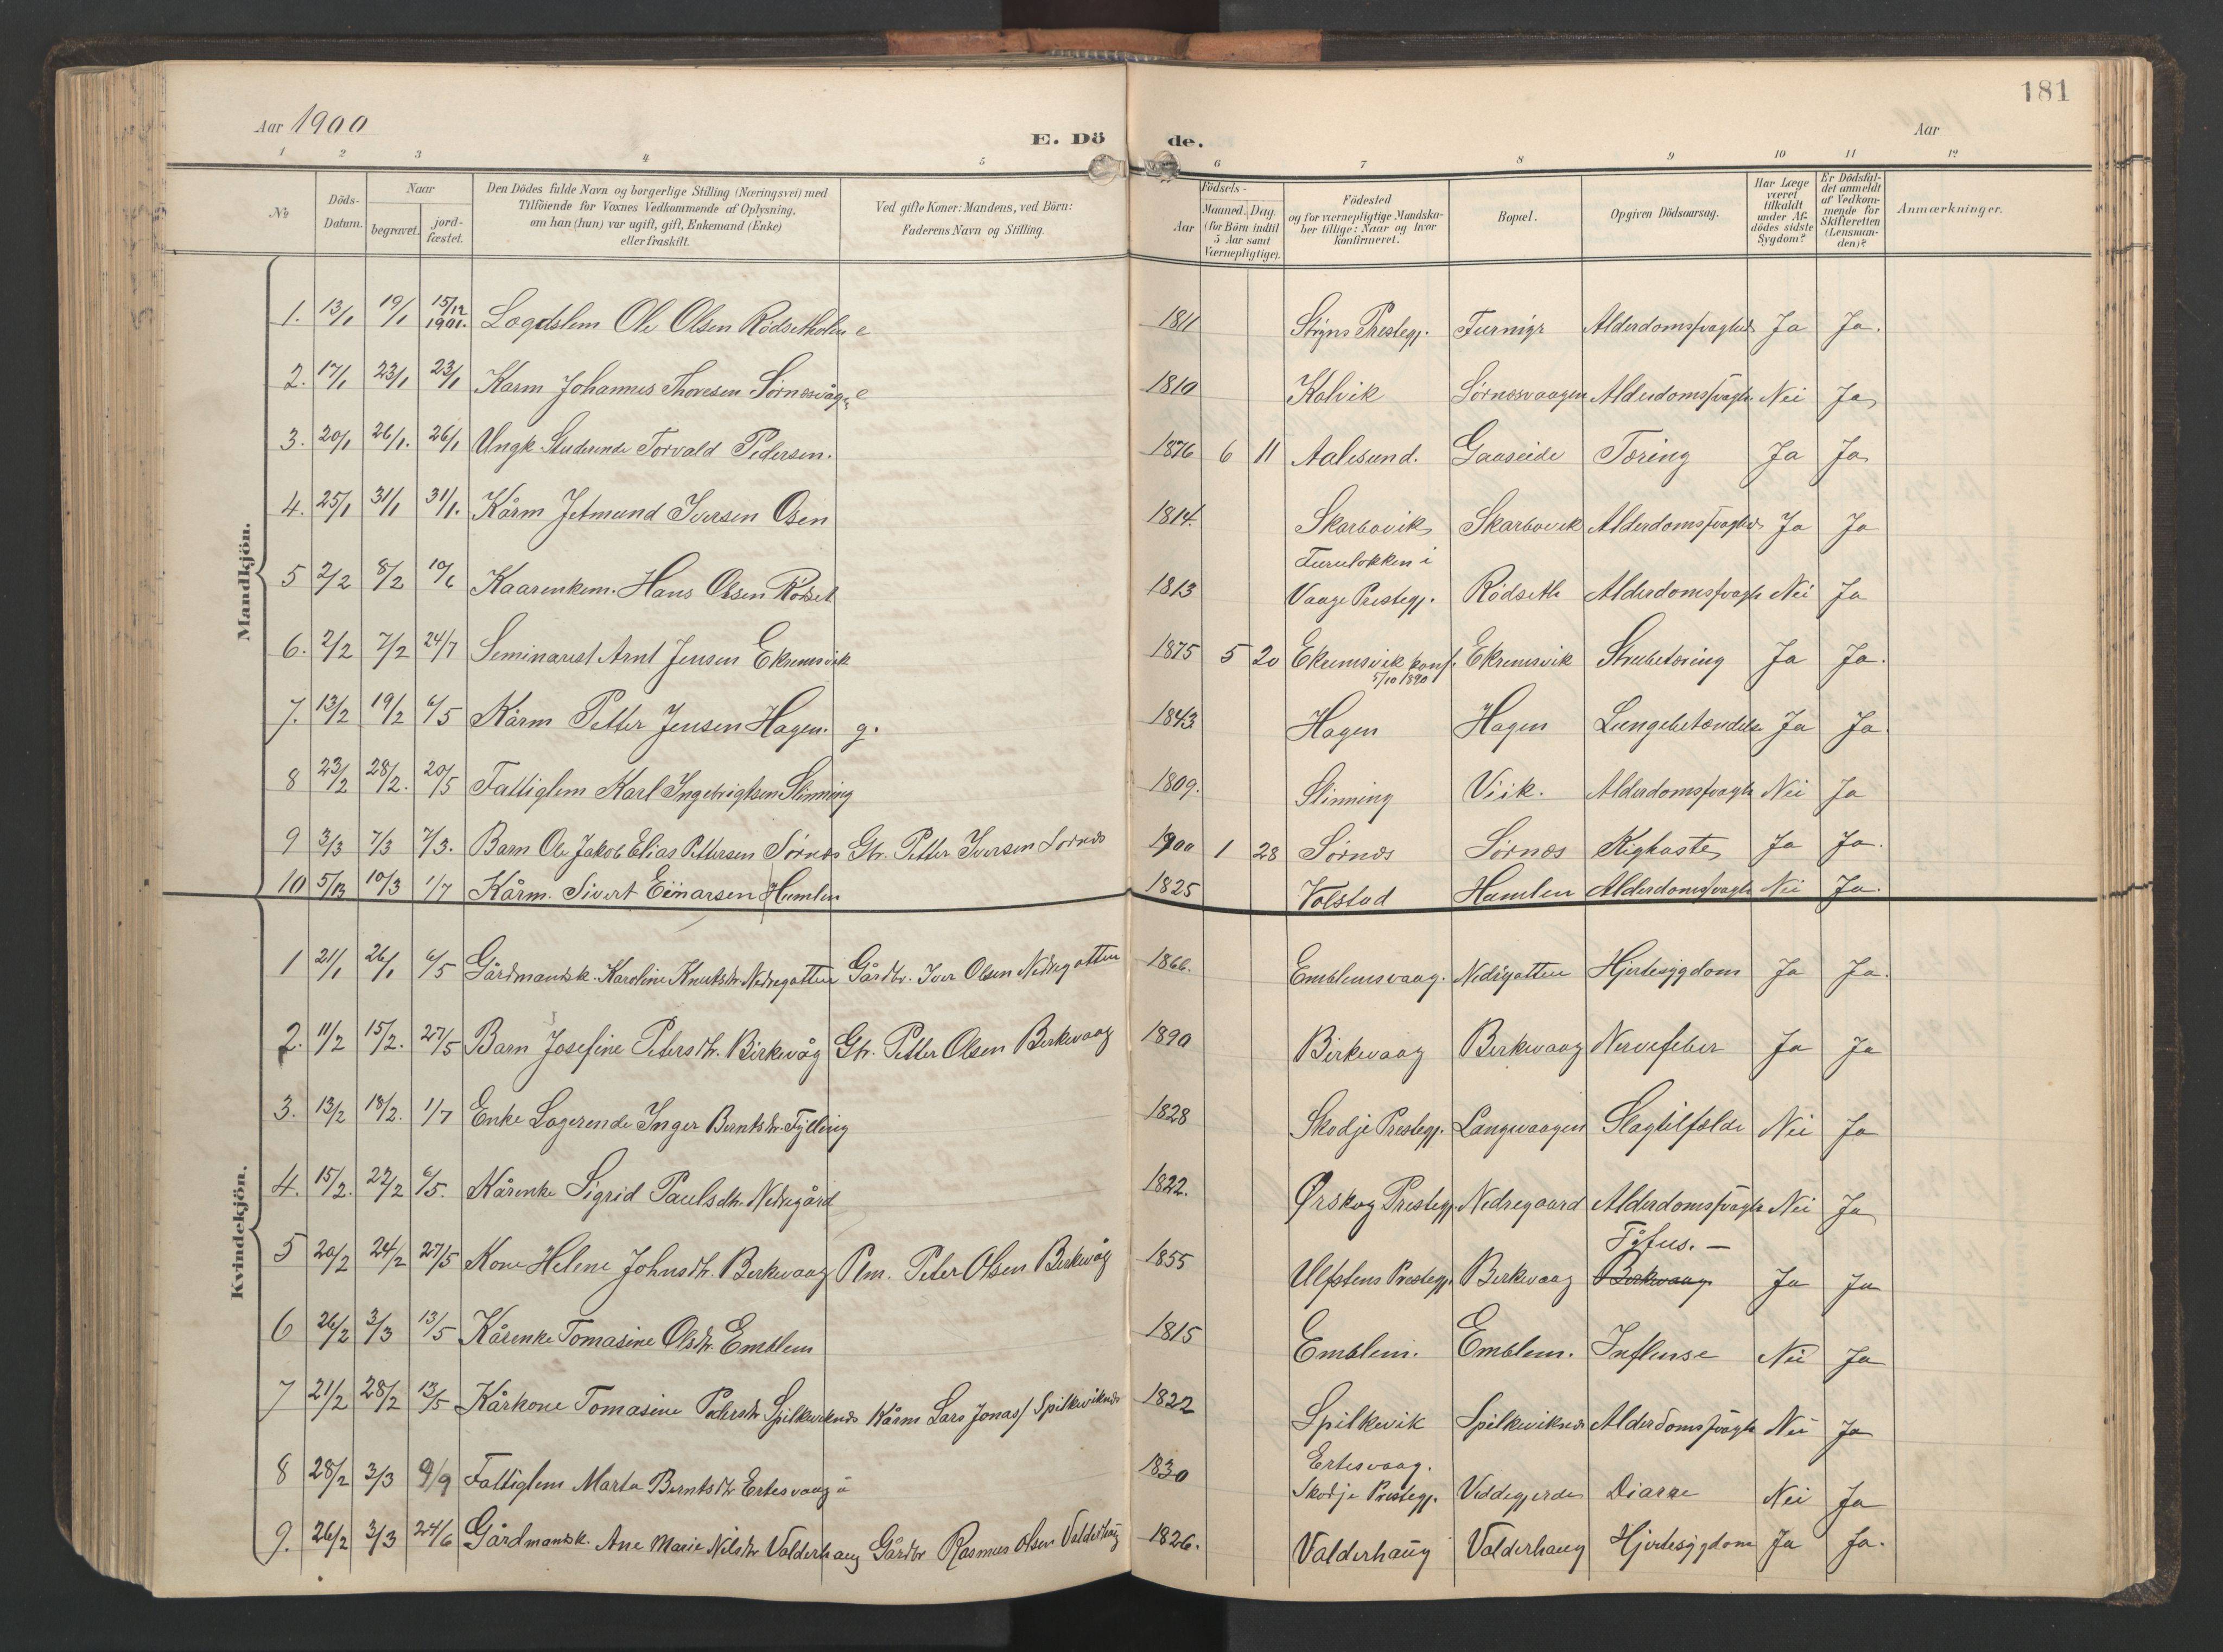 181
Aar 1900
E. Dö de.
Aar
1 2 3 4 5 6 7 8 9 10 11 12
№
Döds-Datum.
Naar
begravet.
jord-fæstet.
Den Dödes fulde Navn og borgerlige Stilling (Næringsvei) med
Tilföiende for Voxnes Vedkommende af Oplysning,
om han (hun) var ugift, gift, Enkemand (Enke)
eller fraskilt.
Ved gifte Koner: Mandens, ved Börn:
Faderens Navn og Stilling.
Födsels-
Aar
Maaned. Dag.
(for Börn indtil
5 Aar samt
Værnepligtige).
Födested
og for værnepligtige Mandska-
ber tillige: Naar og hvor
konfirmeret.
Bopæl.
Opgiven Dödsaarsag.
Har Læge
været
tilkaldt
under Af-
dödes sidste
Sygdom?
Er Dödsfal-
det anmeldt
af Vedkom-
mende for
Skifteretten
(Lensman-
den)?
Anmærkninger.
Mandkjön.
1. 13/1 19/1 15/12 1901. Logdslem Ole Olsen Rödsetholm e 1811 Stryns Prestegj. Furmyr Alderdomssvaghed Ja Ja.
2. 17/1 23/1 23/1 Kaarm Johannes Thoresen Sørnesvåg e 1810 Kalvik Sørnesvaagen Alderdomssvagh Nei Ja
3. 20/1 26/1. 26/1 Ungk. Studerende Torvald Pedersen. 1876 6 11 Aalesund. Gaaseide Tæring Ja Ja
4. 25/1 31/1 31/1. Kårm Jetmund Iversen Osen 1814. Skarbøvik Skarbøvik Alderdomssvaghed Ja Ja
5 2/2 8/2 10/6 Kaarenkem. Hans Olsen Rödset 1813 Furulokken i Vaage Prestegj. Rödseth Alderdomssvagh Nei Ja
6. 2/2 7/2 24/7 Seminarist Arnt Jensen Ekremsvik 1875 5 20 Ekremsvik konf. 5/10 1890 Ekremsvik Strubetæring Ja Ja.
7. 13/2 19/2 6/5 Kårm Petter Jensen Hagen. g. 1843 Hagen Hagen Lungebetændelse Ja Ja.
8 23/2 28/2. 20/5 Fattiglem Karl Ingebrigtsen Slinning 1809. Slinning Viik. Alderdomssvagh Nei Ja
9 3/3 7/3 7/3. Barn Ole Jakob Elias Pettersen Sørnes Gbr. Petter Iversen Sørnes 1900 1 28 Sørnes Sørnes Kighoste Ja Ja.
10 5/3 10/3 1/7 Kårm. Sivert Einarsen Humlen 1825 Volstad Humlen Alderdomssvagh Nei Ja.
Kvindekjön.
1 21/1 26/1 6/5 Gårdmandsk. Karoline Knutsdr. Nedregotten Gårdbr. Iver Olsen Nedregotten 1866. Emblemsvaag. Nedregotten Hjertesygdom Ja Ja.
2. 11/2 15/2. 27/5 Barn Josefine Petersdtr. Birkevåg Gbr. Petter Olsen Berkevaag 1890 Birkevaag Berkevaag Nervefeber Ja Ja
3. 13/2 18/2. 1/7 Enke Logerende Inger Berntsdr. Fylling 1828 Skodje Prestegj. Langevaagen Slagtilfælde Nei Ja
4. 15/2. 22/2 6/5. Kårenke Sigrid Paulsdtr. Nedregård 1822. Ørskog Prestegj. Nedregaard Alderdomssvagh Nei Ja
5 20/2 24/2 27/5 Kone Helene Johnsdtr. Berkevaag Plm. Peter Olsen Berkevåg 1855 Ulfstens Prestegj. Berkevaag Tyfus. — Berkevaag Ja Ja
6 26/2 3/3 13/5 Kårenke Tomasine Olsdtr. Emblem 1815 Emblem. Emblem. Influense Nei Ja
7 21/2 28/2 13/5 Kårkone Tomasine Pedersdtr Spilkeviknes Kårm Lars Jonas/ Spilkeviknes 1822 Spilkevik Spilkeviknes Alderdomssvagh Nei Ja
8 28/2 3/3 9/9 Fattiglem Marta Berntsdtr Ertesvaag u 1830 Ertesvaag. Skodje Prestegj. Viddegjerde Diarre Nei Ja
9. 26/2 3/3 24/6 Gårdmandsk. Ane Marie Nilsdtr Valderhaug Gårdbr Rasmus Olsen Valderhaug 1826. Valderhaug Valderhaug Hjertesygdom Ja Ja.